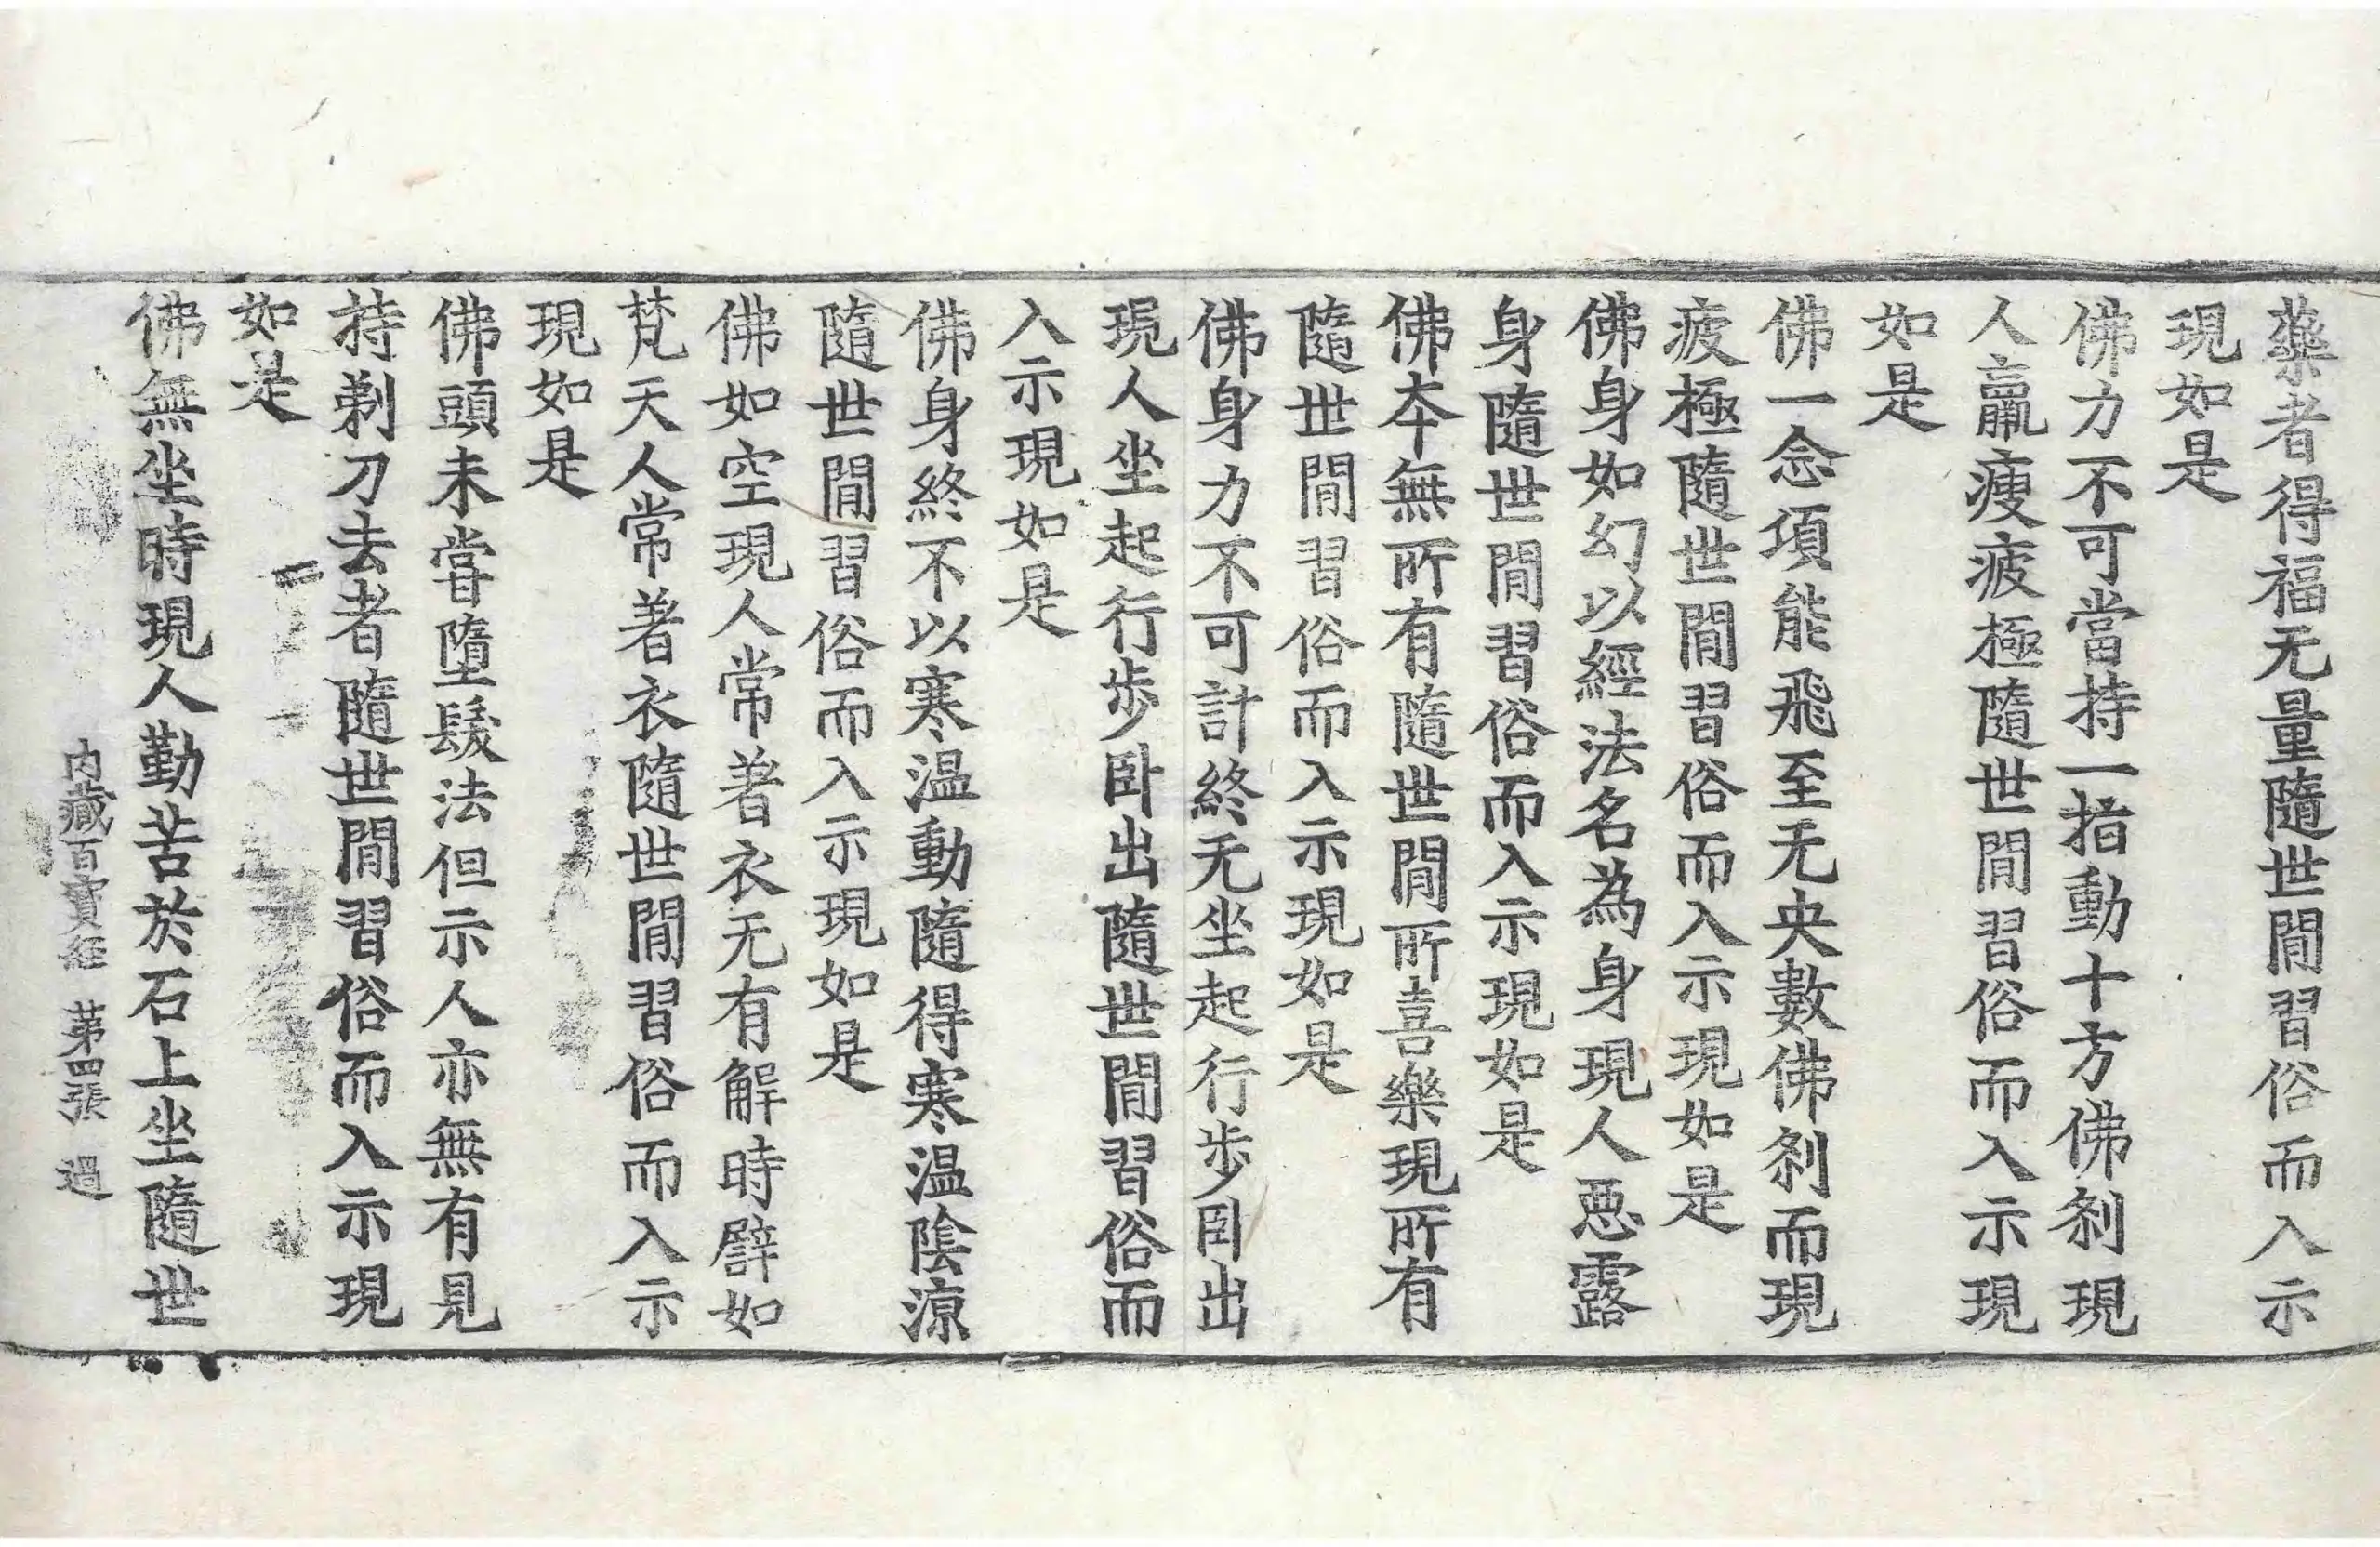 藥者得福无量隨世閒習俗而入示
現如是
佛力不可當持一指動十方佛刹現
人羸瘦疲極隨世閒習俗而入示現
如是
佛一念項能飛至无央數佛刹而現
疲極隨世閒習俗而入示現如是
佛身如幻以經法名為身現人惡露
身隨世閒習俗而入示現如是
佛本無所有隨世閒所喜樂現所有
隨世閒習俗而入示現如是
佛身力不可計終无坐起行步卧出
現人坐起行步卧出隨世閒習俗而
入示現如是
佛身終不以寒温動隨得寒温陰涼
隨世閒習俗而入示現如是
佛如空現人常著衣无有解時譬如
梵天人常著衣隨世閒習俗而入示
現如是
佛頭未嘗墮髮法但示人亦無有見
持剃刀去者隨世閒習俗而入示現
如是
佛無坐時現人勤苦於石上坐隨世
内藏百寶經 第四張 過